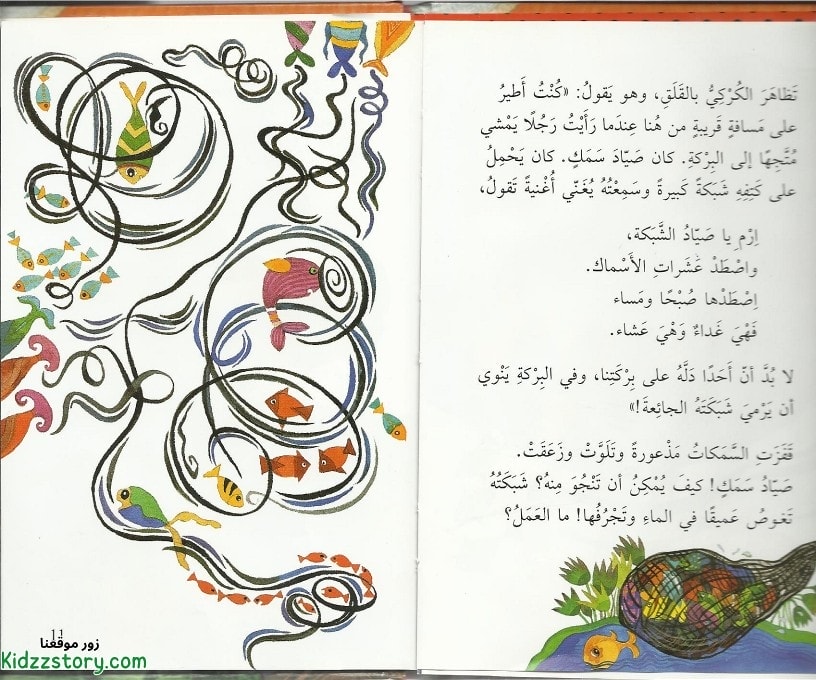 تَظاهَرَ الكُرْكِيُّ بالقَلَقِ، وهو يَقولُ: «كُنْتُ أَطيرُ
على مَسافةٍ قَريبةٍ من هُنا عِندَما رَأَيْتُ رَجُلًا يَمْشي
مُتَّجِهًا إلى البِرْكةِ. كان صَيّادَ سَمَكٍ. كان يَحْمِلُ
على كَتِفِهِ شَبَكةً كَبيرةً وسَمِعْتُهُ يُغَنّي أُغْنيةً تَقولُ،
اِرْمِ يا صَيّادُ الشَّبَكة،
واصْطَدْ عَشَراتِ الأَسْماك.
اِصْطَدْها صُبْحًا ومَساء
فَهْيَ غَداءٌ وَهْيَ عَشاء.
لا بُدَّ أنّ أَحَدًا دَلَّهُ على بِرْكَتِنا، وفي البِرْكةِ يَنْوي
أن يَرْمِيَ شَبَكَتَهُ الجائِعةَ!»
قَفَزَتِ السَّمَكاتُ مَذْعورةً وتَلَوَّتْ وزَعَقَتْ.
صَيّادُ سَمَكٍ! كيفَ يُمْكِنُ أن تَنْجُوَ مِنهُ؟ شَبَكَتُهُ
تَغوصُ عَميقًا في الماءِ وتَجْرُفُها! ما العَمَلُ؟
11
زور موقعنا
Kidzzstory.com